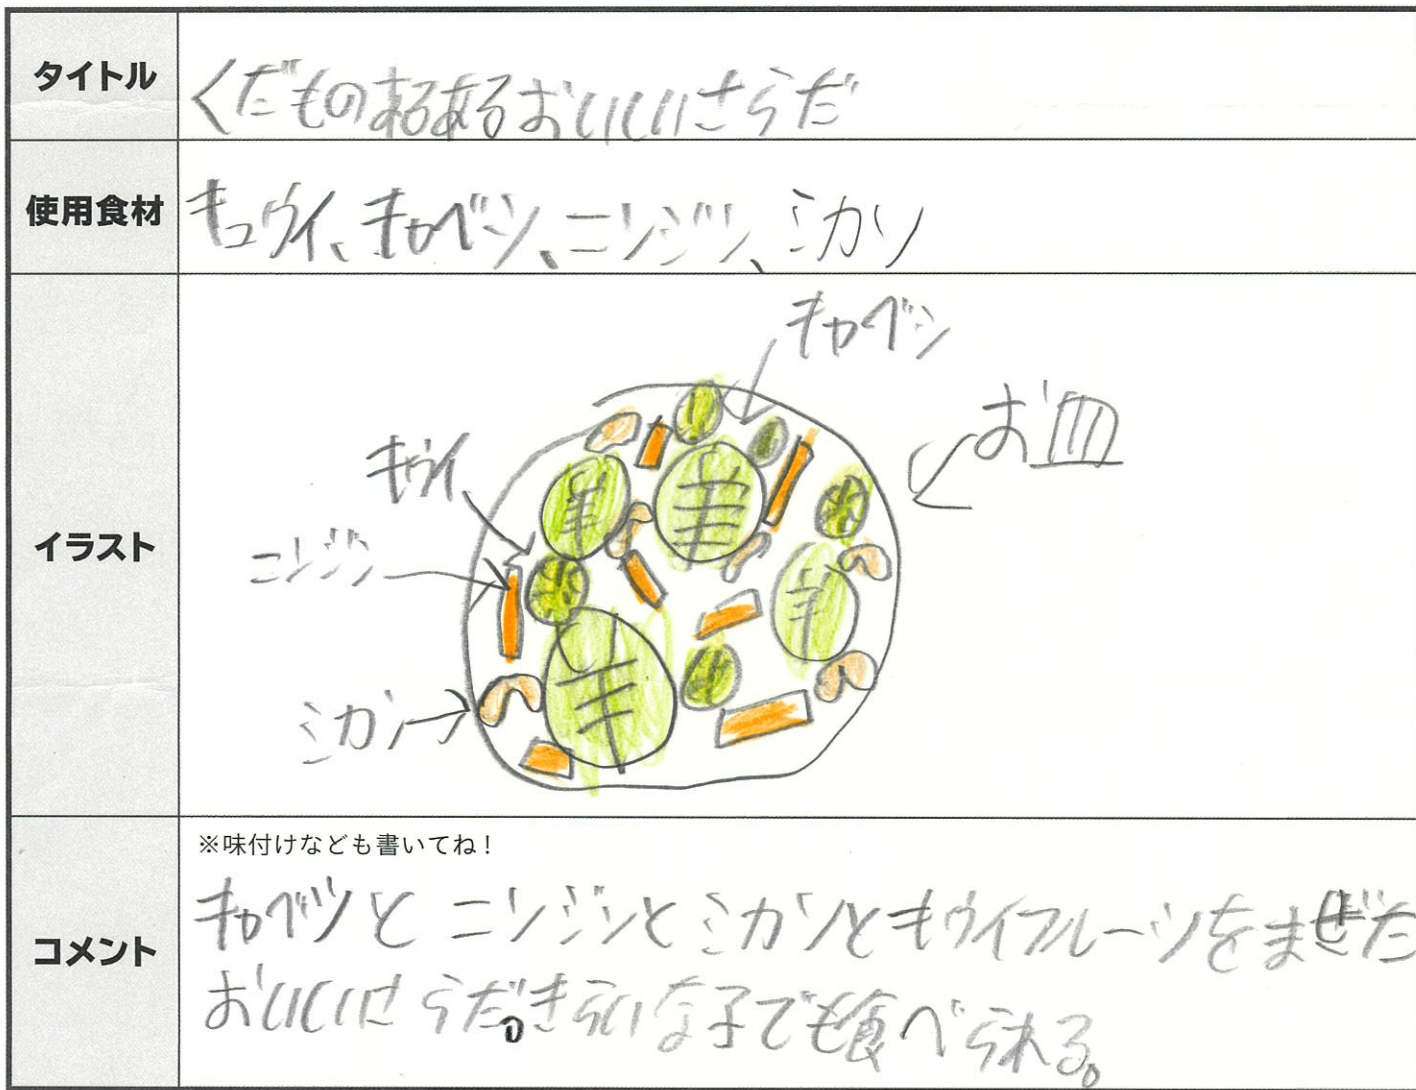 タイトル
くだものあるあるおいしいさらだ
使用食材
キュウイ、キャベツ、ニンジン、ミカン
イラスト
キャベツ
お皿
キウイ
ニンジン
ミカン
コメント
※味付けなども書いてね!
キャベツとニンジンとミカンとキウイフルーツをまぜた
おいしいさらだ。きらいな子でも食べられる。